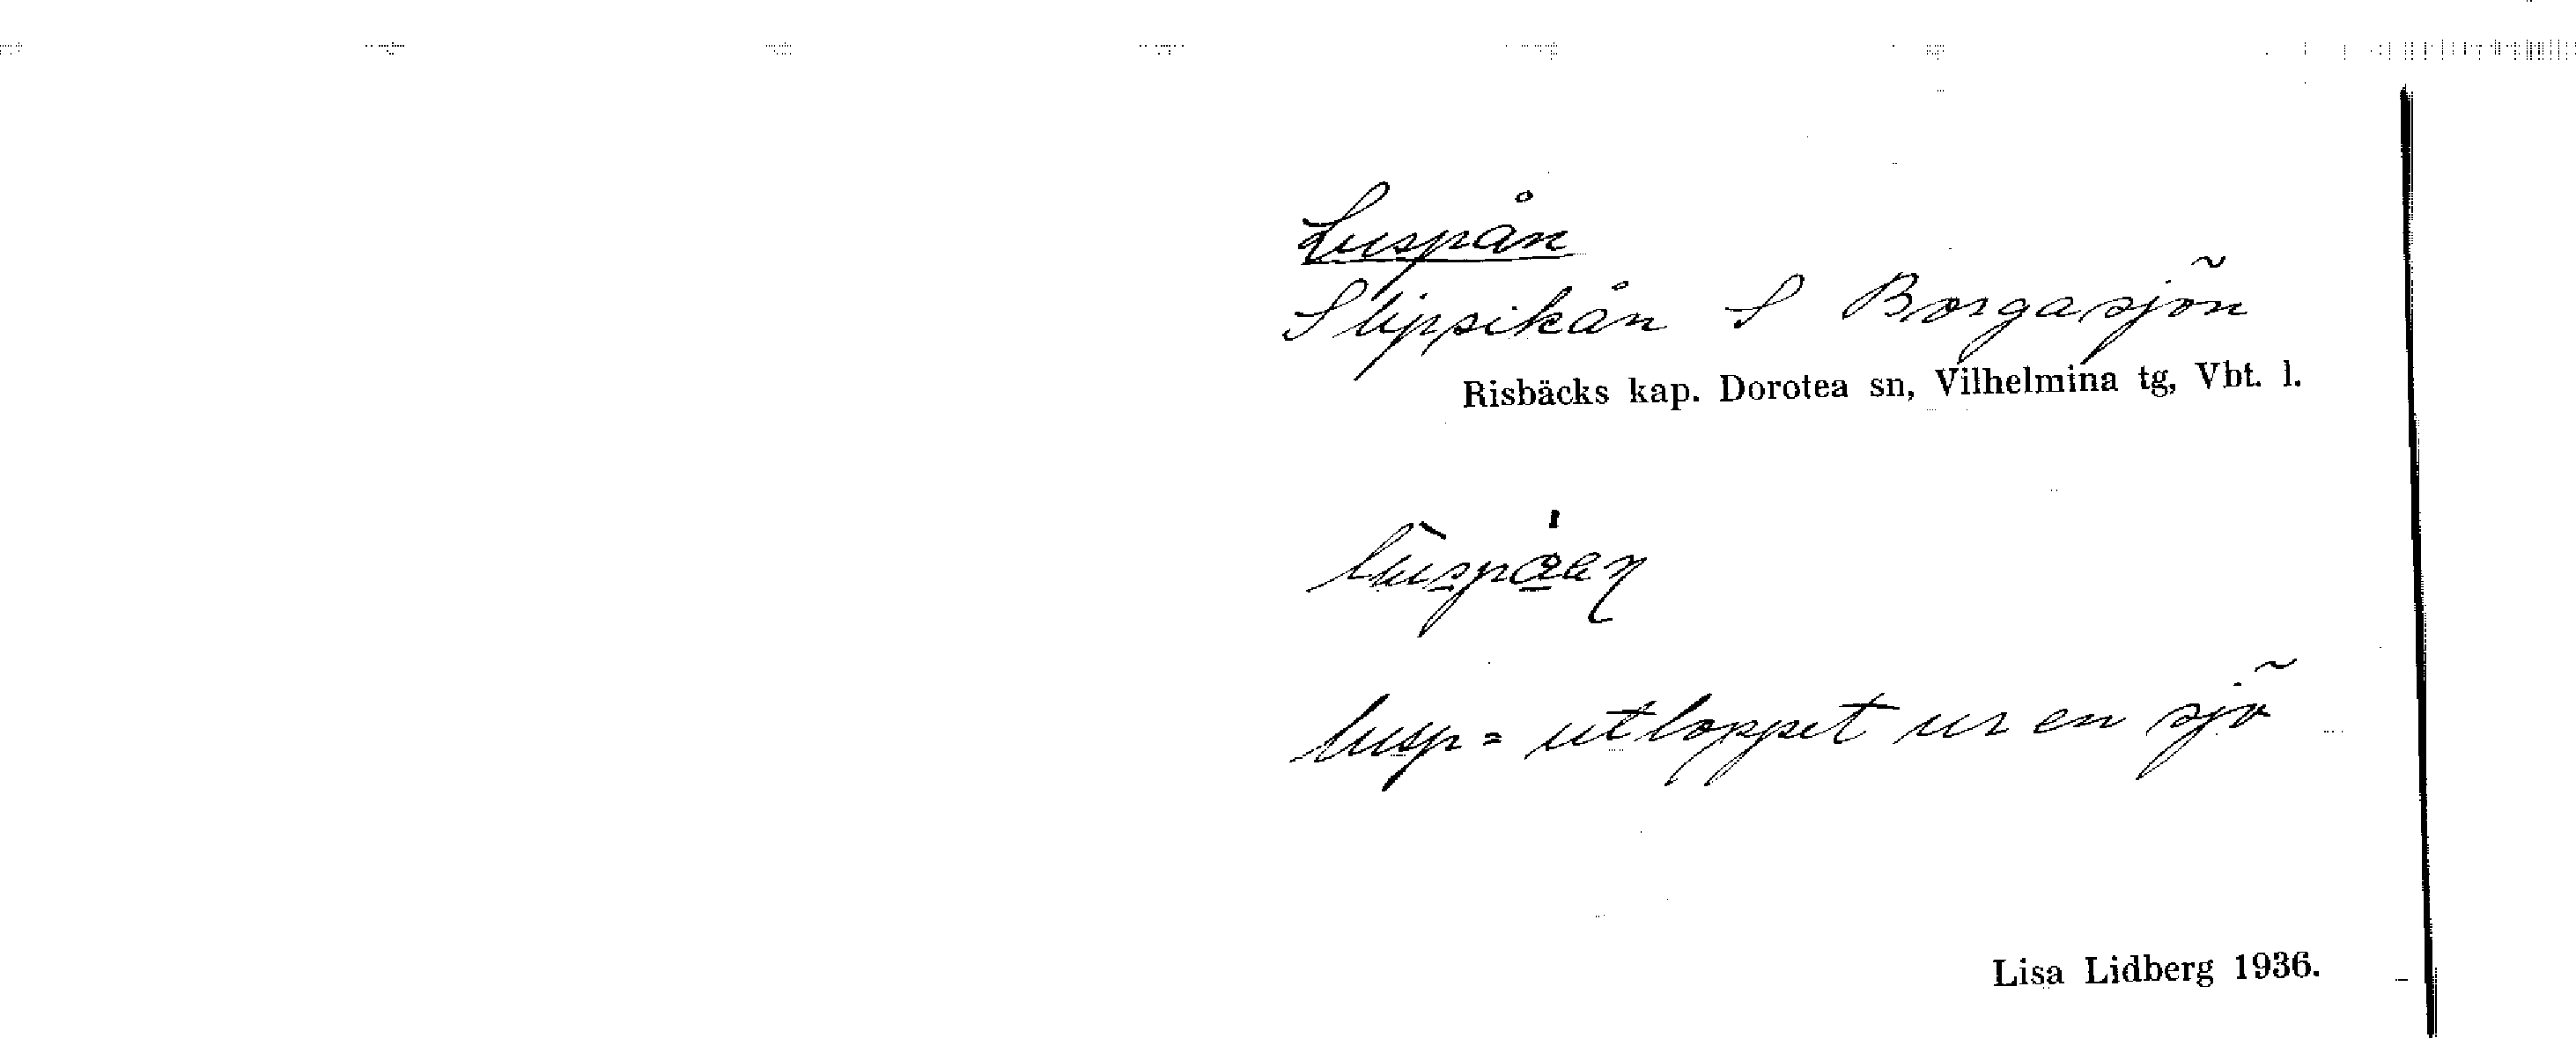 Luspån
Slipsikån S Borgasjön
Risbäcks kap. Dorotea sn, Vilhelmina tg, Vbt. l.
lusp = utloppet ur en sjö
Lisa Lidberg 1936.